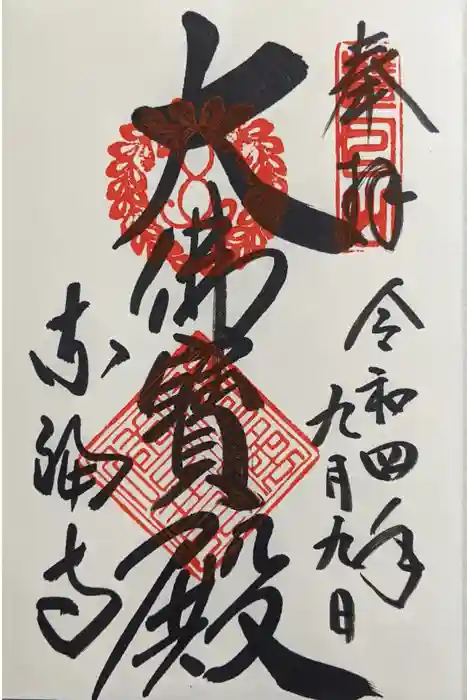 奉拝
令和四年
九月九日
大佛寶殿
東福寺